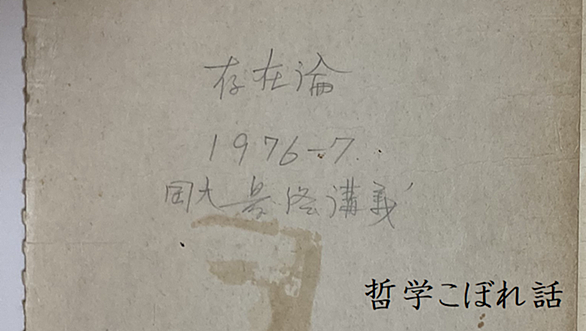 存在論
1976-7
講義
哲学こぼれ話